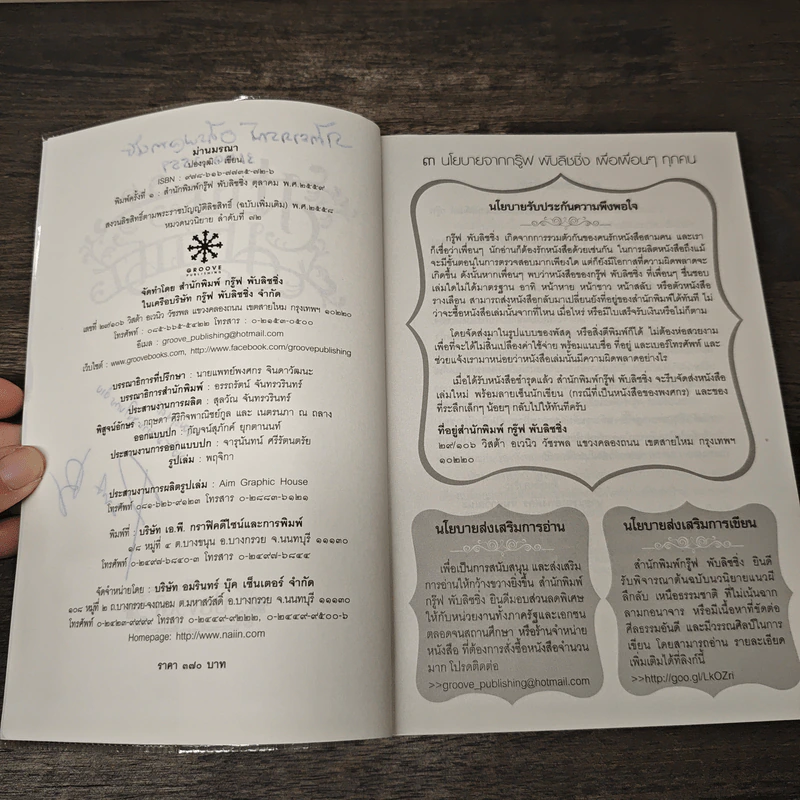 ม่านมรณา
ปองวุฒิ เขียน
ISBN : ๙๗๘-๖๑๖-๗๗๓๕-๗๒-๖
พิมพ์ครั้งที่ ๑ : สำนักพิมพ์กรู๊ฟ พับลิชชิ่ง ตุลาคม พ.ศ.๒๕๕๙
สงวนลิขสิทธิ์ตามพระราชบัญญัติลิขสิทธิ์ (ฉบับเพิ่มเติม) พ.ศ.๒๕๕๘
หมวดนวนิยาย ลำดับที่ ๗๒
GROOVE
PUBLISHING
จัดทำโดย สำนักพิมพ์ กรู๊ฟ พับลิชชิ่ง
ในเครือบริษัท กรู๊ฟ พับลิชชิ่ง จำกัด
เลขที่ ๒๙/๑๐๖ วิสต้า อเวนิว วัชรพล แขวงคลองถนน เขตสายไหม กรุงเทพฯ ๑๐๒๒๐
โทรศัพท์ : ๐๘๕-๖๖๕-๕๔๒๒ โทรสาร : ๐-๒๑๕๓-๐๕๐๐
อีเมล : groove_publishing@hotmail.com
เว็บไซต์ : www.groovebooks.com, http://www.facebook.com/groovepublishing
บรรณาธิการที่ปรึกษา : นายแพทย์พงศกร จินดาวัฒนะ
บรรณาธิการสำนักพิมพ์ : อรรถรัตน์ จันทรวรินทร์
ประสานงานการผลิต : สุลวัณ จันทรวรินทร์
พิสูจน์อักษร : กฤษดา ศิริกิจพาณิชย์กูล และ เนตรนภา ณ ถลาง
ออกแบบปก : กัญจน์สุภัคค์ ยุกตานนท์
ประสานงานการออกแบบปก : จารุนันทน์ ศรีรัตนตรัย
รูปเล่ม : พฤจิกา
ประสานงานการผลิตรูปเล่ม : Aim Graphic House
โทรศัพท์ ๐๘๑-๖๒๖-๙๑๒๓ โทรสาร ๐-๒๘๘๓-๖๑๒๑
พิมพ์ที่ : บริษัท เอ.พี. กราฟิคดีไซน์และการพิมพ์
๑/๘ หมู่ที่ ๔ ต.บางขนุน อ.บางกรวย จ.นนทบุรี ๑๑๑๓๐
โทรศัพท์ ๐-๒๔๙๗-๖๘๔๐-๓ โทรสาร ๐-๒๔๙๗-๖๘๔๔
จัดจำหน่ายโดย : บริษัท อมรินทร์ บุ๊ค เซ็นเตอร์ จำกัด
๑๐๘ หมู่ที่ ๒ ถ.บางกรวย-จงถนอม ต.มหาสวัสดิ์ อ.บางกรวย จ.นนทบุรี ๑๑๑๓๐
โทรศัพท์ ๐-๒๔๒๓-๙๙๙๙ โทรสาร ๐-๒๔๔๙-๙๒๒๒, ๐-๒๔๔๙-๙๕๐๐-๖
Homepage: http://www.naiin.com
ราคา ๓๗๐ บาท
๓ นโยบายจากกรู๊ฟ พับลิชชิ่ง เพื่อเพื่อนๆ ทุกคน
นโยบายรับประกันความพึงพอใจ
กรู๊ฟ พับลิชชิ่ง เกิดจากการรวมตัวกันของคนรักหนังสือสามคน และเรา
ก็เชื่อว่าเพื่อนๆ นักอ่านก็ต้องรักหนังสือด้วยเช่นกัน ในการผลิตหนังสือถึงแม้
จะมีขั้นตอนในการตรวจสอบมากเพียงใด แต่ก็ยังมีโอกาสที่ความผิดพลาดจะ
เกิดขึ้น ดังนั้นหากเพื่อนๆ พบว่าหนังสือของกรู๊ฟ พับลิชชิ่ง ที่เพื่อนๆ ชื่นชอบ
เล่มใดไม่ได้มาตรฐาน อาทิ หน้าหาย หน้าขาว หน้าสลับ หรือตัวหนังสือ
รางเลือน สามารถส่งหนังสือกลับมาเปลี่ยนยังที่อยู่ของสำนักพิมพ์ได้ทันที ไม่
ว่าจะซื้อหนังสือเล่มนั้นจากที่ไหน เมื่อไหร่ หรือมีใบเสร็จรับเงินหรือไม่ก็ตาม
โดยจัดส่งมาในรูปแบบของพัสดุ หรือสิ่งตีพิมพ์ก็ได้ ไม่ต้องห่อสวยงาม
เพื่อที่จะได้ไม่สิ้นเปลืองค่าใช้จ่าย พร้อมแนบชื่อ ที่อยู่ และเบอร์โทรศัพท์ และ
ช่วยแจ้งเรามาหน่อยว่าหนังสือเล่มนั้นมีความผิดพลาดอย่างไร
เมื่อได้รับหนังสือชำรุดแล้ว สำนักพิมพ์กรู๊ฟ พับลิชชิ่ง จะรีบจัดส่งหนังสือ
เล่มใหม่ พร้อมลายเซ็นนักเขียน (กรณีที่เป็นหนังสือของพงศกร) และของ
ที่ระลึกเล็กๆ น้อยๆ กลับไปให้ทันทีครับ
ที่อยู่สำนักพิมพ์ กรู๊ฟ พับลิชชิ่ง
๒๙/๑๐๖ วิสต้า อเวนิว วัชรพล แขวงคลองถนน เขตสายไหม กรุงเทพฯ
๑๐๒๒๐
นโยบายส่งเสริมการอ่าน
เพื่อเป็นการสนับสนุน และส่งเสริม
การอ่านให้กว้างขวางยิ่งขึ้น สำนักพิมพ์
กรู๊ฟ พับลิชชิ่ง ยินดีมอบส่วนลดพิเศษ
ให้กับหน่วยงานทั้งภาครัฐและเอกชน
ตลอดจนสถานศึกษา หรือร้านจำหน่าย
หนังสือ ที่ต้องการสั่งซื้อหนังสือจำนวน
มาก โปรดติดต่อ
>>groove_publishing@hotmail.com
นโยบายส่งเสริมการเขียน
สำนักพิมพ์กรู๊ฟ พับลิชชิ่ง ยินดี
รับพิจารณาต้นฉบับนวนิยายแนวผี
ลึกลับ เหนือธรรมชาติ ที่ไม่เน้นฉาก
ลามกอนาจาร หรือมีเนื้อหาที่ขัดต่อ
ศีลธรรมอันดี และมีวรรณศิลป์ในการ
เขียน โดยสามารถอ่าน รายละเอียด
เพิ่มเติมได้ที่ลิงก์นี้
>>http://goo.gl/LkOZri